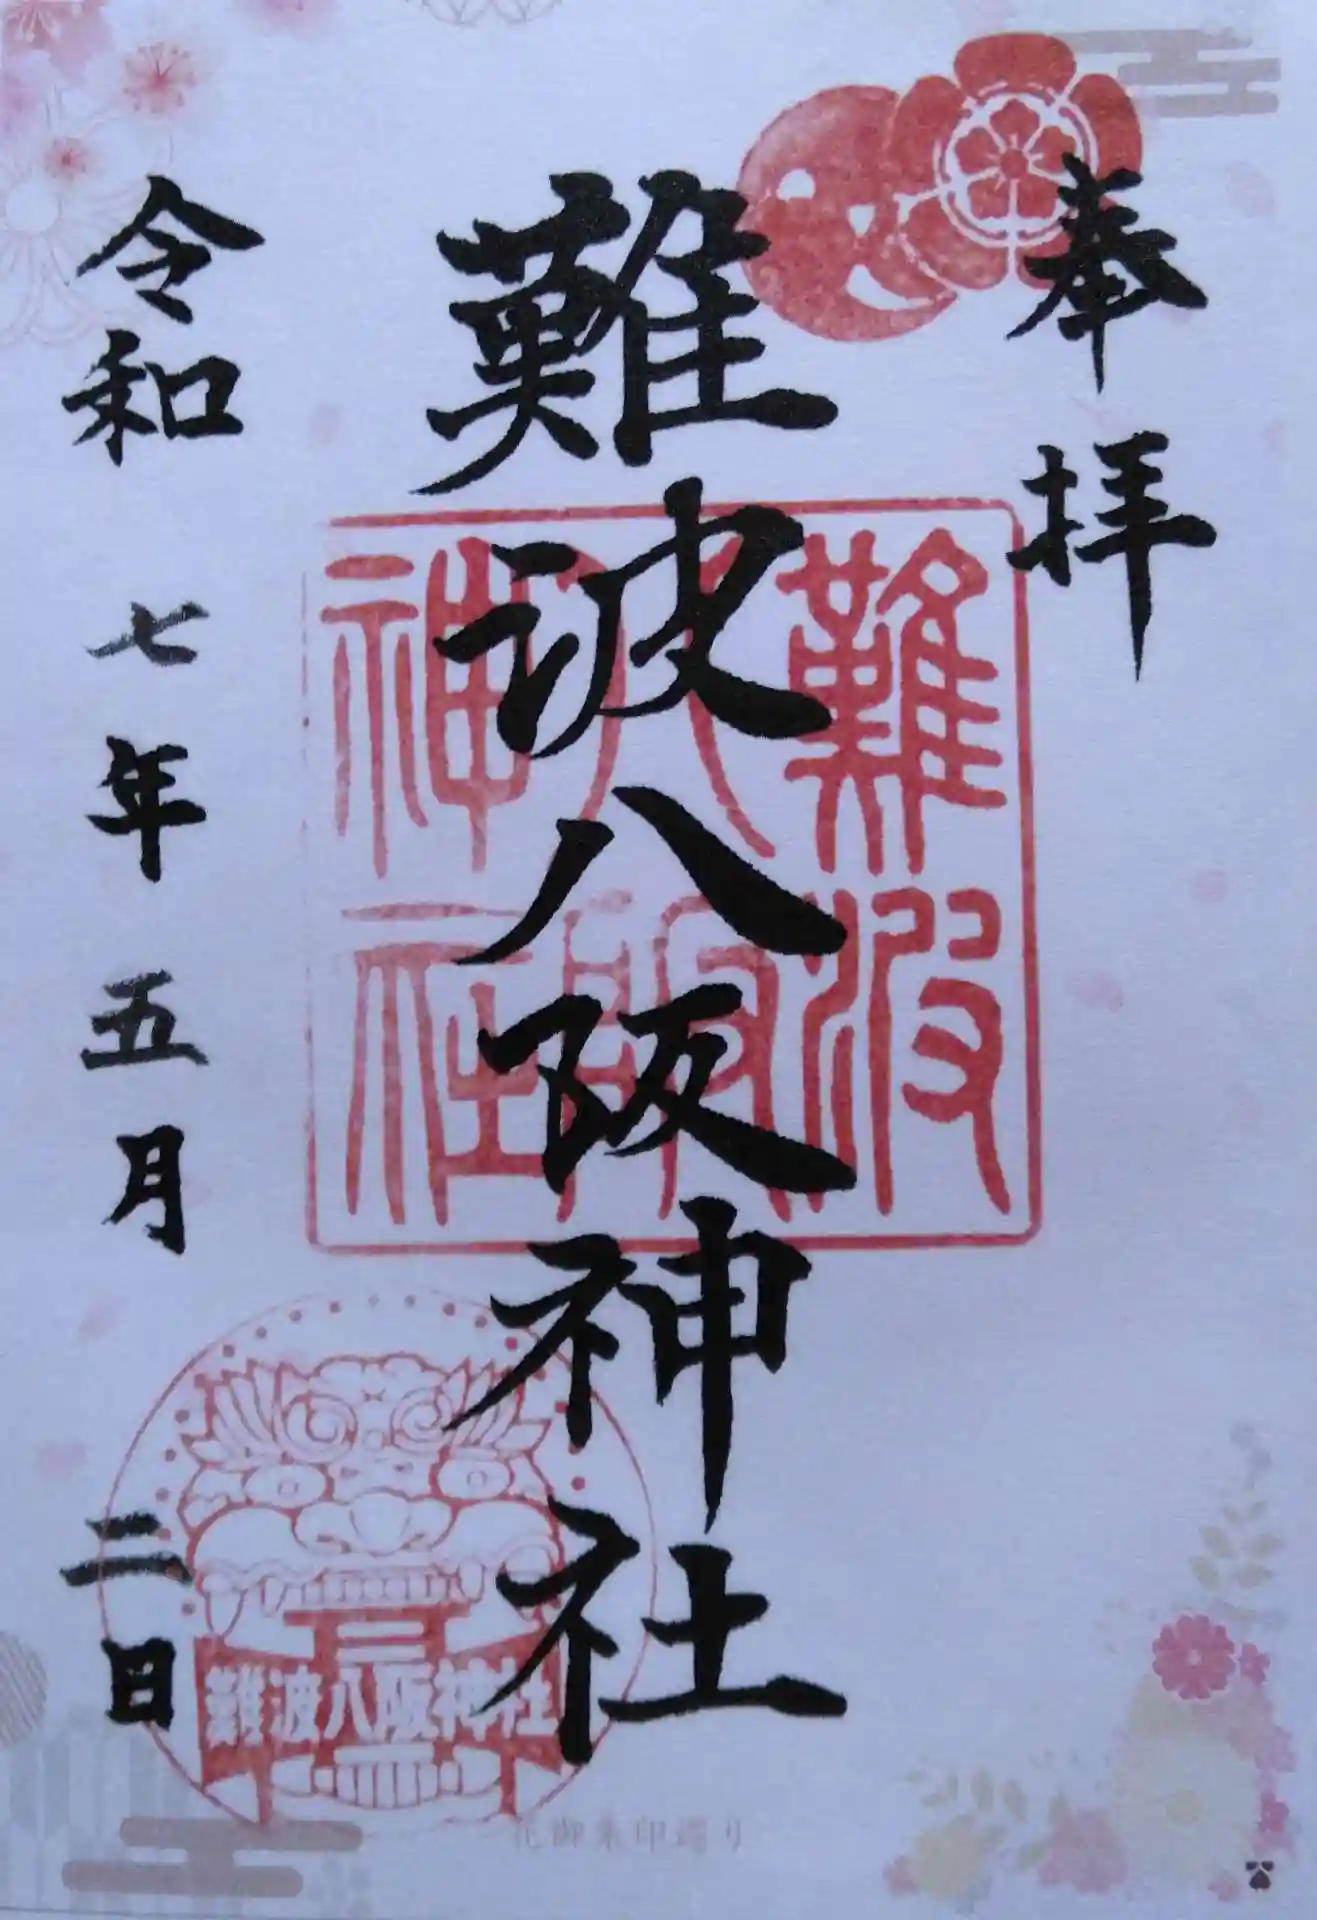 奉拝
難波八阪神社
令和七年五月二日
難波
八阪
神社
難波八阪神社
花御朱印巡り